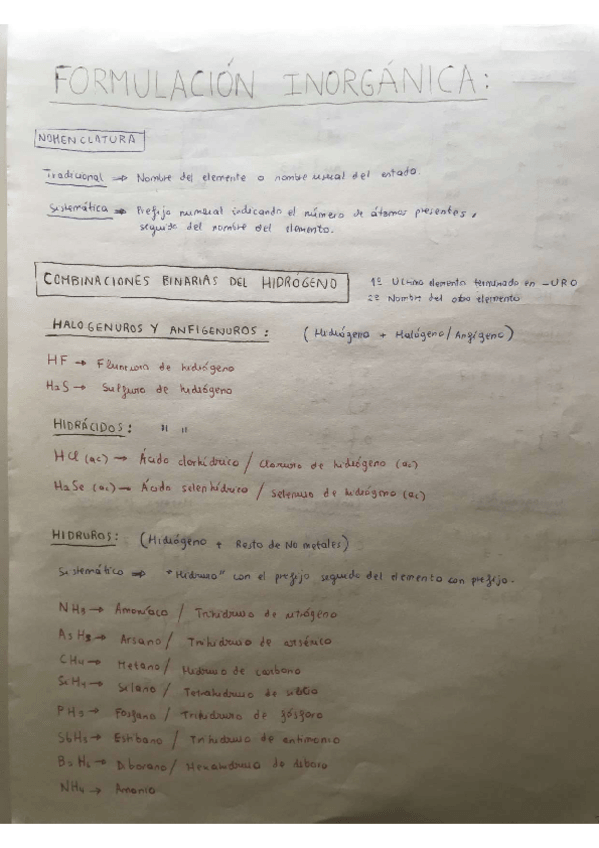 FORMULACIÓN INORGÁNICA:
NOMENCLATURA
Tradicional → Nombre del elemento o nombre usual del estado.
Sistemática → Prefijo numeral indicando el número de átomos presentes,
seguido del nombre del elemento.
COMBINACIONES BINARIAS DEL HIDRÓGENO
1º Último elemento terminado en -URO
2º Nombre del otro elemento
HALOGENUROS Y ANFIGENUROS: (Hidrógeno + Halógeno/Anfígeno)
HF → Fluoruro de hidrógeno
H2S → Sulfuro de hidrógeno
HIDRÁCIDOS: " "
HCl (ac) → Ácido clorhídrico / Cloruro de hidrógeno (ac)
H2Se (ac) → Ácido selenhídrico / seleniuro de hidrógeno (ac)
HIDRUROS: (Hidrógeno + Resto de No metales)
Sistemático ⇒ "Hidruro" con el prefijo seguido del elemento con prefijo.
NH3 → Amoníaco / Trihidruro de nitrógeno
AsH3 → Arsano / Trihidruro de arsénico
CH4 → Metano / Hidruro de carbono
SiH4 → Silano / Tetrahidruro de silicio
PH3 → Fosfano / Trihidruro de fósforo
SbH3 → Estibano / Trihidruro de antimonio
B2H6 → Diborano / Hexahidruro de diboro
NH4 → Amonio